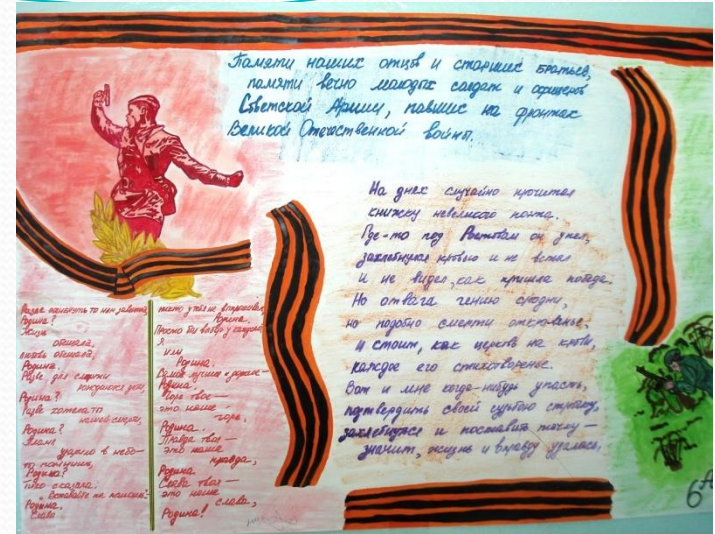 Памяти наших отцов и старших братьев,
памяти вечно молодых солдат и офицеров
Советской Армии, павших на фронтах
Великой Отечественной войны.
На днях случайно прочитал
книжку невеликого поэта.
Где-то под Ростовом он упал,
захлебнулся кровью и не встал
и не видел, как пришла победа.
Но отвага гению сродни,
но подобно смерти откровенье.
И стоит, как церковь на крови,
каждое его стихотворенье.
Вот и мне когда-нибудь упасть,
подтвердить своей судьбою строчку,
захлебнуться и поставить точку —
значит, жизнь и вправду удалась.
Разве погибнуть ты нам завещала,
Родина?
Жизнь
обещала,
любовь обещала,
Родина.
Разве для смерти
рождаются дети,
Родина?
Разве хотела ты
нашей смерти,
Родина?
Пламя
ударило в небо
ты помнишь,
Родина?
Тихо сказала:
Вставайте на помощь
Родина.
Славы
никто у тебя не выпрашивал,
Родина.
Просто был выбор у каждого:
я
или
Родина.
Самое лучшее и дорогое
Родина.
Горе твое —
это наше
горе,
Родина.
Правда твоя —
это наша
правда,
Родина.
Слава твоя —
это наша
слава,
Родина!
6А